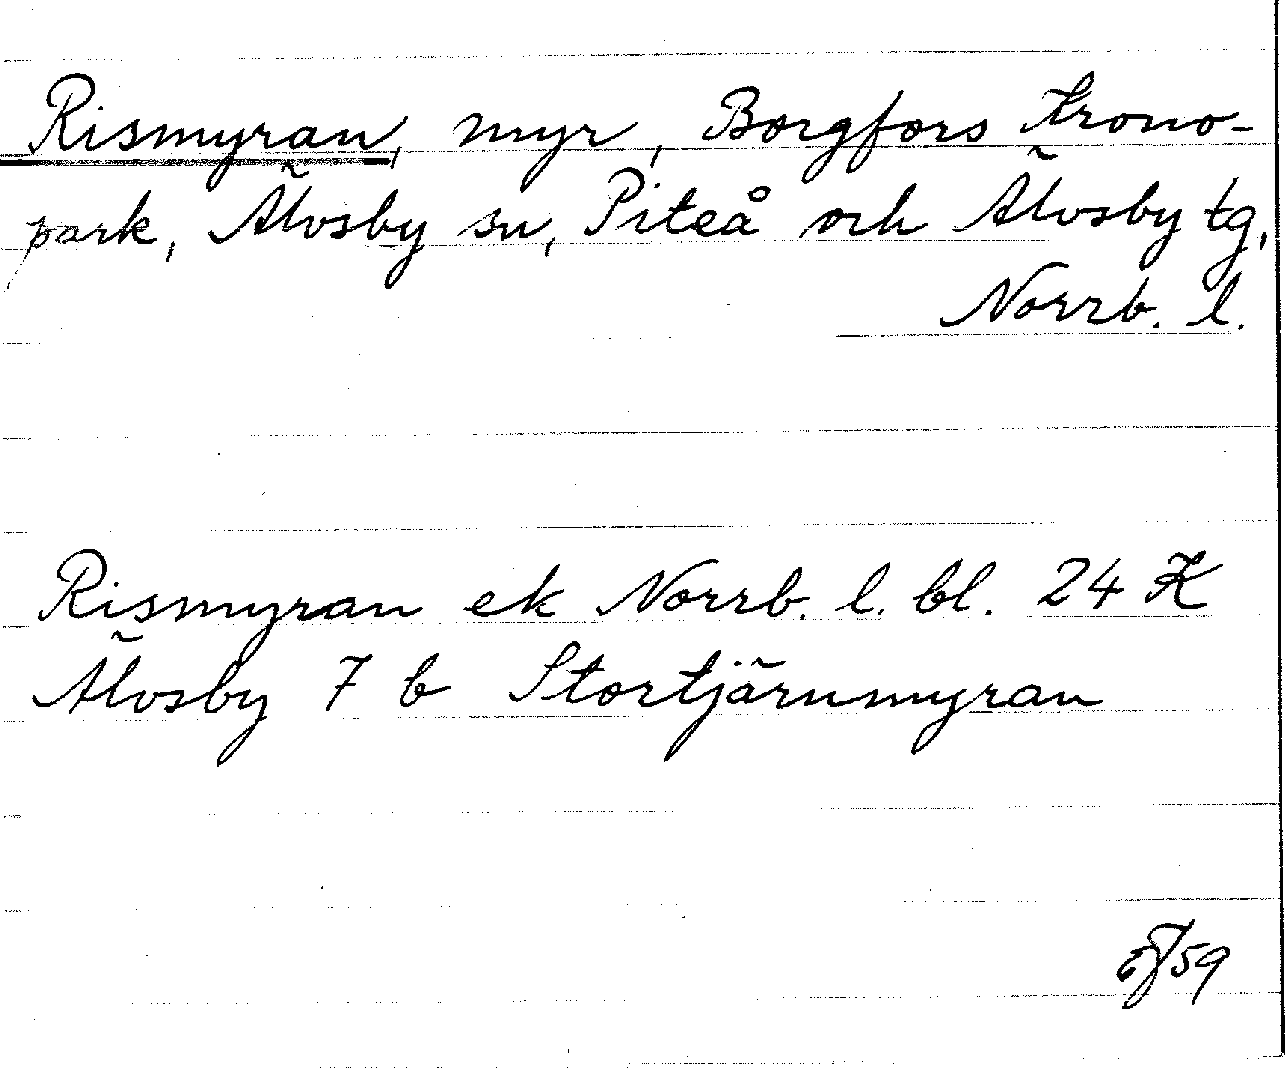 Rismyran, myr, Borgfors Krono-
park, Älvsby sn, Piteå och Älvsby tg,
Norrb. l.
Rismyran ek Norrb. l. bl. 24 K
Älvsby 7 b Stortjärnmyran
59